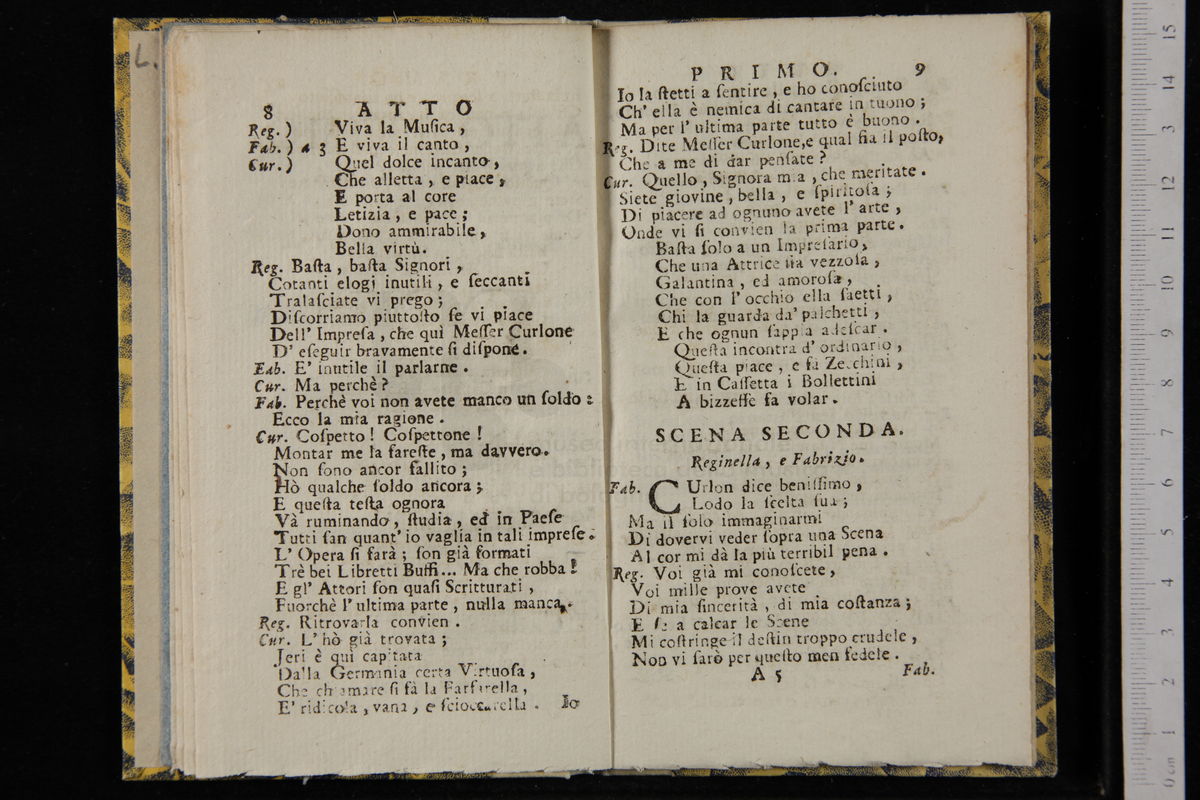 L.
8 ATTO
Reg. ) Viva la Muſica ,
Fab. ) a 3 E viva il canto ,
Cur. ) Quel dolce incanto,
Che alletta , e piace ,
E porta al core
Letizia , e pace ;
Dono ammirabile ,
Bella virtù.
Reg. Baſta , baſta Signori ,
Cotanti elogj inutili , e ſeccanti
Tralaſciate vi prego ;
Diſcorriamo piuttoſto ſe vi piace
Dell' Impreſa , che quì Meſſer Curlone
D' eſeguir bravamente ſi diſpone .
Fab. E' inutile il parlarne .
Cur. Ma perchè ?
Fab. Perchè voi non avete manco un ſoldo :
Ecco la mia ragione .
Cur. Coſpetto ! Coſpettone !
Montar me la fareſte , ma davvero.
Non ſono ancor fallito ;
Hò qualche ſoldo ancora ;
E queſta teſta ognora
Và ruminando , ſtudia , ed in Paeſe
Tutti ſan quant' io vaglia in tali impreſe .
L' Opera ſi farà ; ſon già formati
Trè bei Libretti Buffi ... Ma che robba !
E gl' Attori ſon quaſi Scritturati ,
Fuorchè l' ultima parte , nulla manca .
Reg. Ritrovarla convien .
Cur. L' hò già trovata ;
Jeri è quì capitata
Dalla Germania certa Virtuoſa ,
Che chiamare ſi fà la Farfarella ,
E' ridicola , vana , e ſcioccarella . Io
PRIMO. 9
Io la ſtetti a ſentire , e ho conoſciuto
Ch' ella è nemica di cantare in tuono ;
Ma per l' ultima parte tutto è buono .
Reg. Dite Meſſer Curlone,e qual ſia il poſto,
Che a me di dar penſate ?
Cur. Quello , Signora mia , che meritate .
Siete giovine , bella , e ſpiritoſa ;
Di piacere ad ognuno avete l' arte ,
Onde vi ſi convien la prima parte .
Baſta ſolo a un Impreſario ,
Che una Attrice ſia vezzoſa ,
Galantina , ed amoroſa ,
Che con l' occhio ella ſaetti ,
Chi la guarda da' palchetti ,
E che ognun ſappia adeſcar .
Queſta incontra d' ordinario ,
Queſta piace , e fà Zecchini ,
E in Caſſetta i Bollettini
A bizzeffe fa volar .
SCENA SECONDA.
Reginella , e Fabrizio.
Fab. CUrlon dice beniſſimo ,
Lodo la ſcelta ſua ;
Ma il ſolo immaginarmi
Di dovervi veder ſopra una Scena
Al cor mi dà la più terribil pena .
Reg. Voi già mi conoſcete ,
Voi mille prove avete
Di mia ſincerità , di mia coſtanza ;
E ſe a calcar le Scene
Mi coſtringe il deſtin troppo crudele ,
Non vi ſarò per queſto men fedele .
A 5 Fab.
0 cm 1 2 3 4 5 6 7 8 9 10 11 12 3 14 15